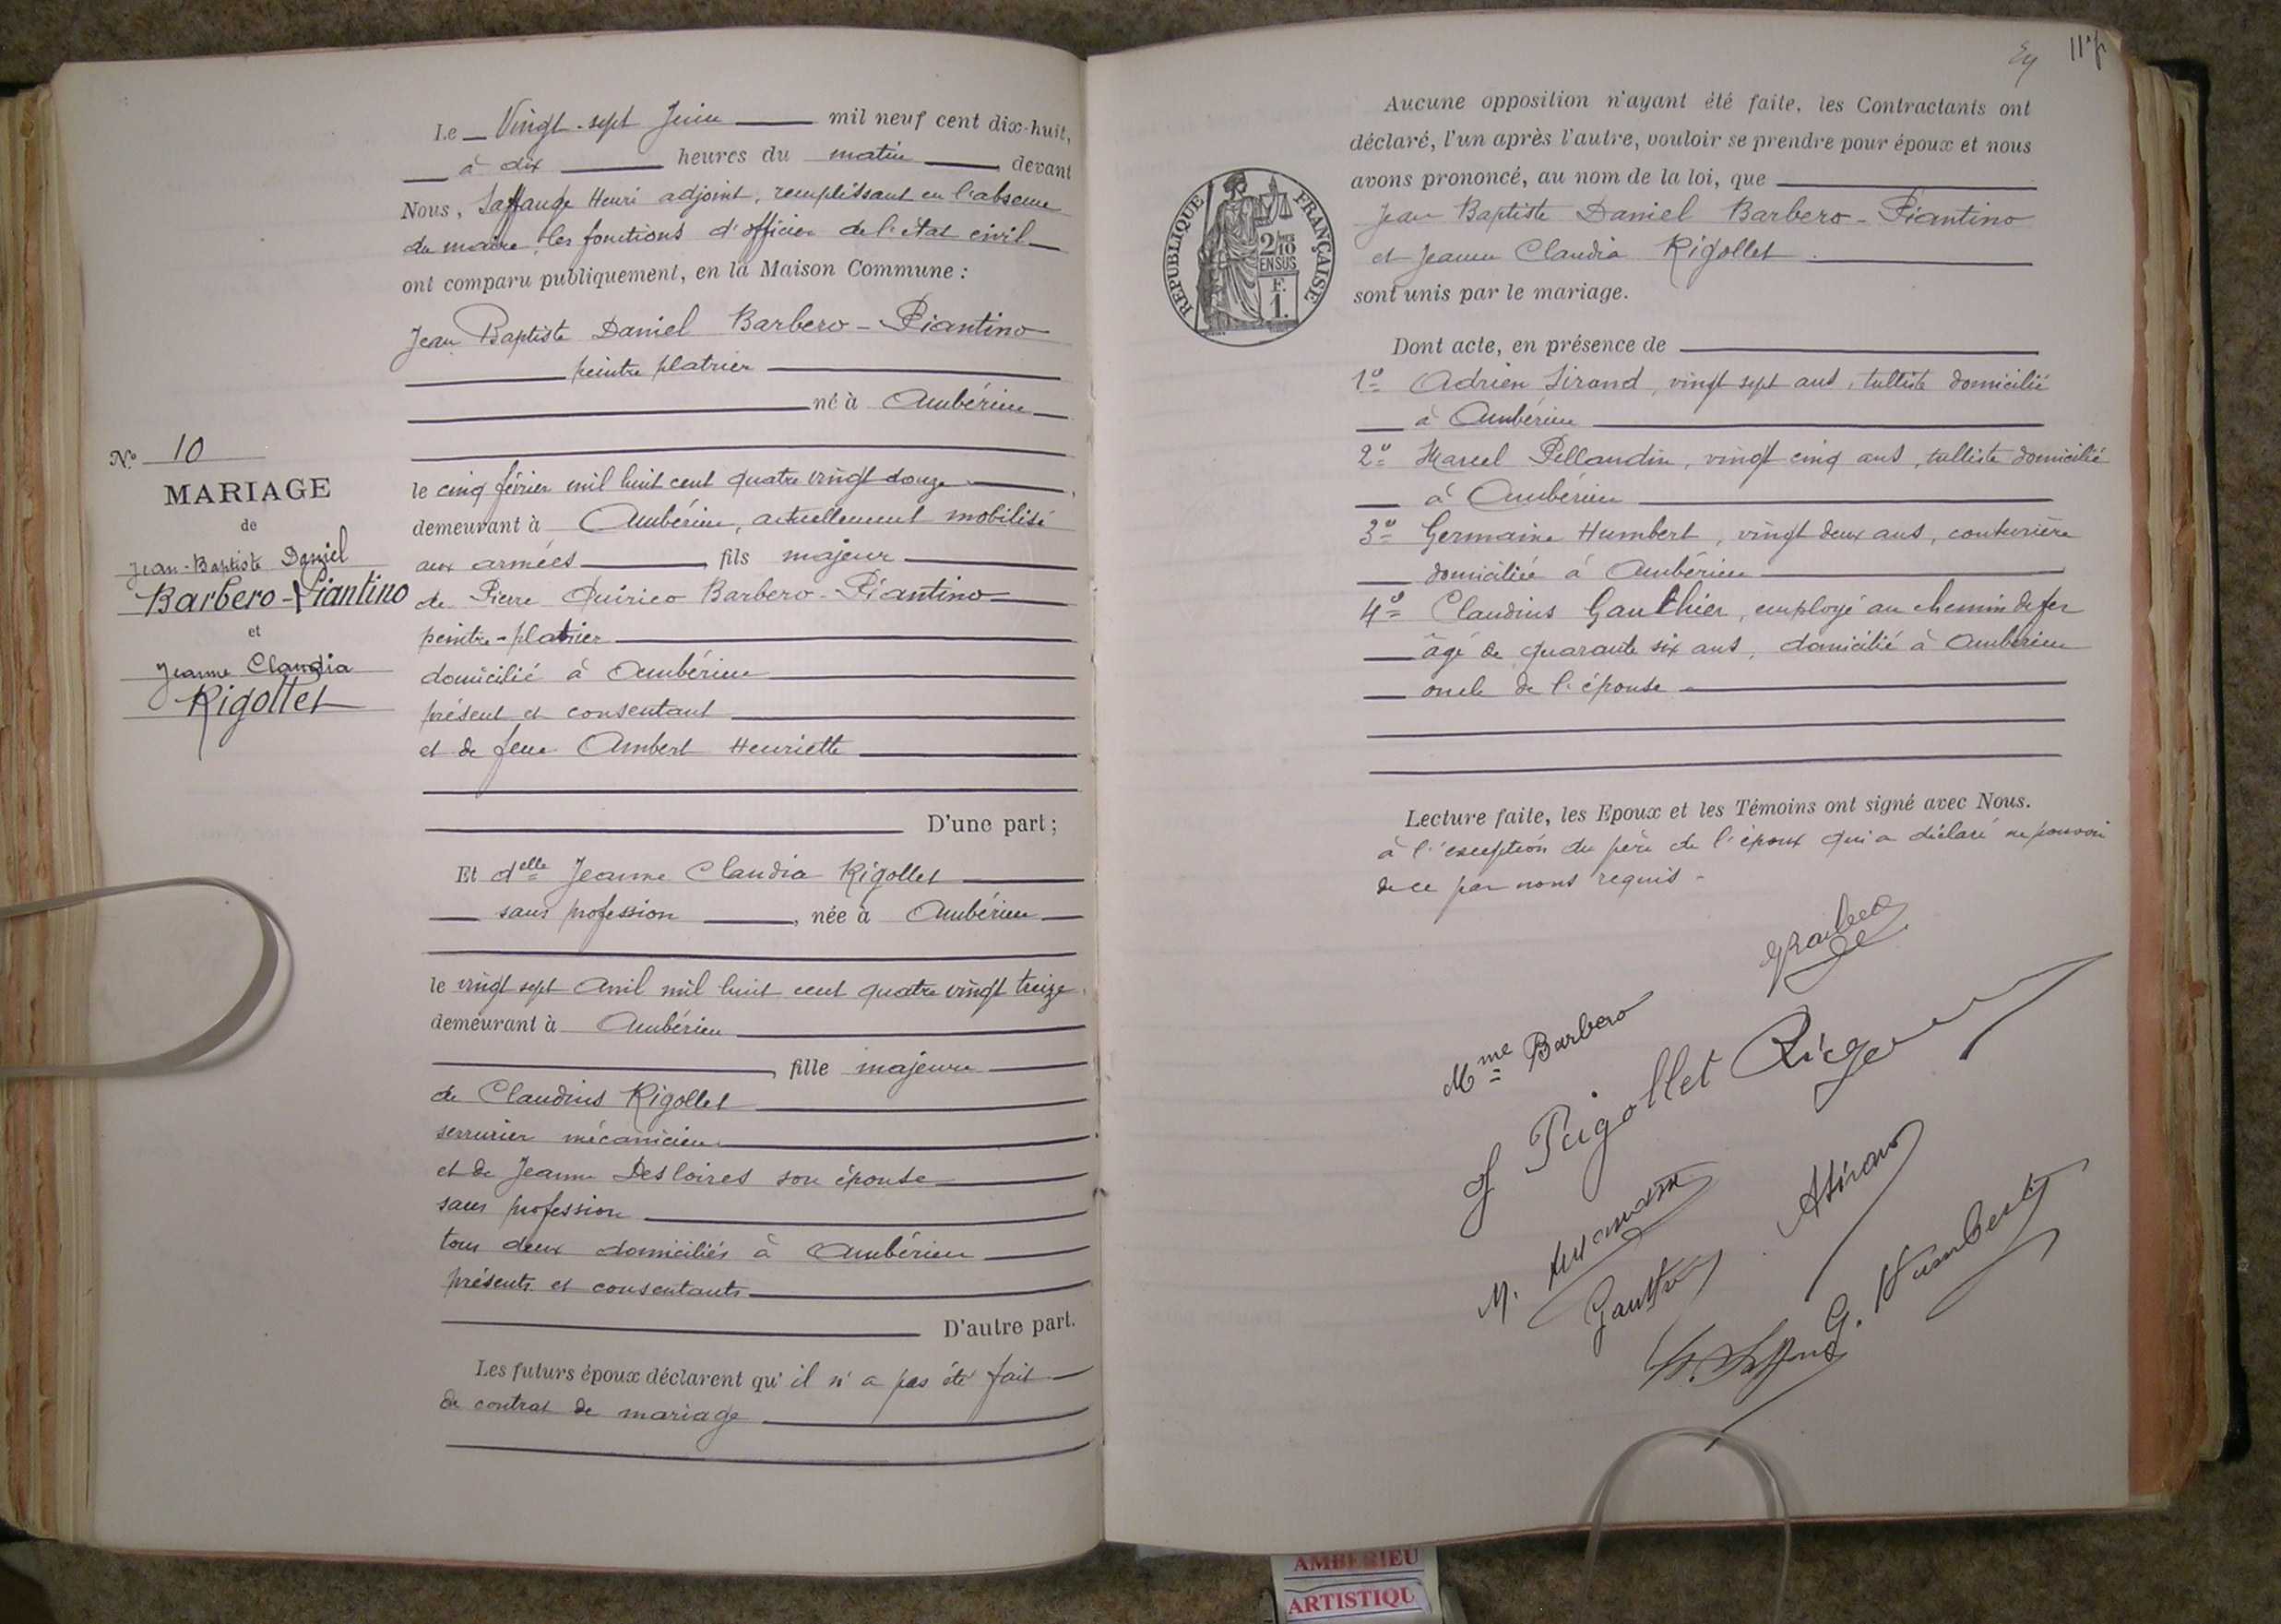 Le Vingt-sept Juin mil neuf cent dix-huit,
à dix heures du matin, devant
Nous, Saffange Henri adjoint, remplissant en l'absence
du maire les fonctions d'officier de l'état civil
ont comparu publiquement, en la Maison Commune :
Jean Baptiste Daniel Barbero-Piantino
peintre platrier
né à Ambérieu
le cinq février mil huit cent quatre vingt douze,
demeurant à Ambérieu, actuellement mobilisé
aux armées, fils majeur
de Pierre Quirico Barbero-Piantino
peintre-platrier
domicilié à Ambérieu
présent et consentant
et de feue Ambert Henriette
D'une part ;
Et delle Jeanne Claudia Rigollet
sans profession, née à Ambérieu
le vingt sept avril mil huit cent quatre vingt treize,
demeurant à Ambérieu
, fille majeure
de Claudius Rigollet
serrurier mécanicien
et de Jeanne Desloires son épouse
sans profession
tous deux domiciliés à Ambérieu
présents et consentants
D'autre part.
Les futurs époux déclarent qu'il n'a pas été fait
de contrat de mariage
N° 10
MARIAGE
de
Jean-Baptiste Daniel
Barbero-Piantino
et
Jeanne Claudia
Rigollet
117
Aucune opposition n'ayant été faite, les Contractants ont
déclaré, l'un après l'autre, vouloir se prendre pour époux et nous
avons prononcé, au nom de la loi, que
Jean Baptiste Daniel Barbero-Piantino
et Jeanne Claudia Rigollet
sont unis par le mariage.
REPUBLIQUE FRANÇAISE
2/10
EN SUS
F.
1.
Dont acte, en présence de
1° Adrien Sirand, vingt sept ans, tulliste domicilié
à Ambérieu
2° Marcel Pellaudin, vingt cinq ans, tulliste domicilié
à Ambérieu
3° Germaine Humbert, vingt deux ans, couturière
domiciliée à Ambérieu
4° Claudius Gauthier, employé au chemin de fer
âgé de quarante six ans, domicilié à Ambérieu
oncle de l'épouse
Lecture faite, les Epoux et les Témoins ont signé avec Nous.
à l'exception du père de l'époux qui a déclaré ne pouvoir
de ce par nous requis -
Mme Barbero
J Rigollet
A Sirand
Gauthier
G. Humbert
AMBERIEU
ARTISTIQU